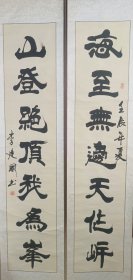 海至無邊天作岸
壬辰年夏
山登絕頂我為峯
李建剛書